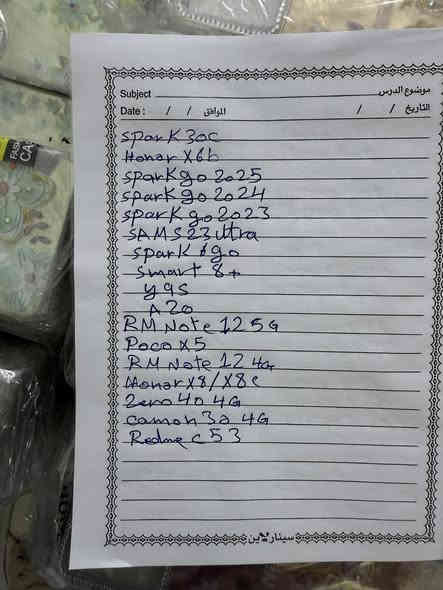 FASH
CA
Subject موضوع الدرس
Date : / / الموافق / / التاريخ
spark 30c
Honor X6b
spark go 2025
spark go 2024
spark go 2023
SAM S23 ultra
spark 6 go
smart 8+
y9s
A20
RM Note 12 5G
Poco X5
RM Note 12 4G
Honor X8/X8c
Zero 40 4G
camon 30 4G
Redme c53
سينارلاين